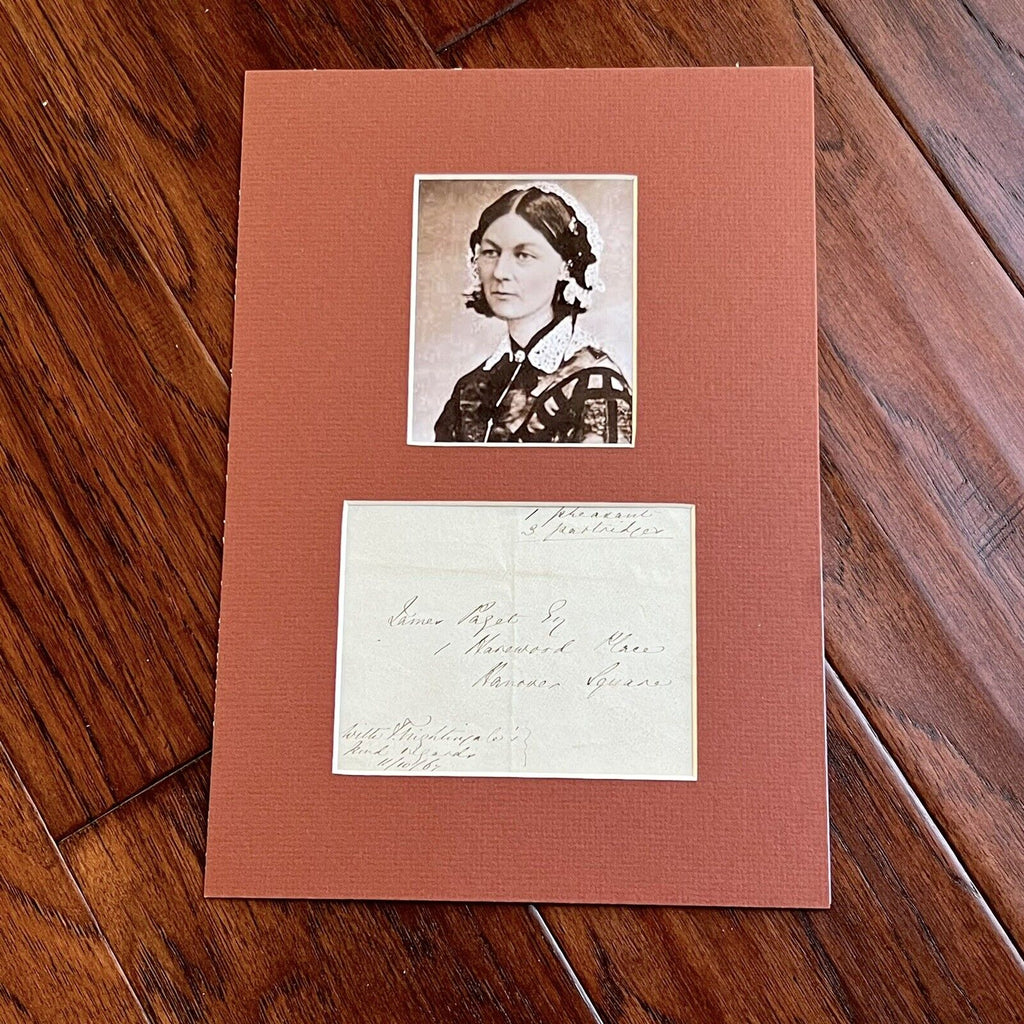 1 pheasant
3 partridges
James Paget Esq
1 Harewood Place
Hanover Square
with F Nightingale's }
kind regards
11/10/67